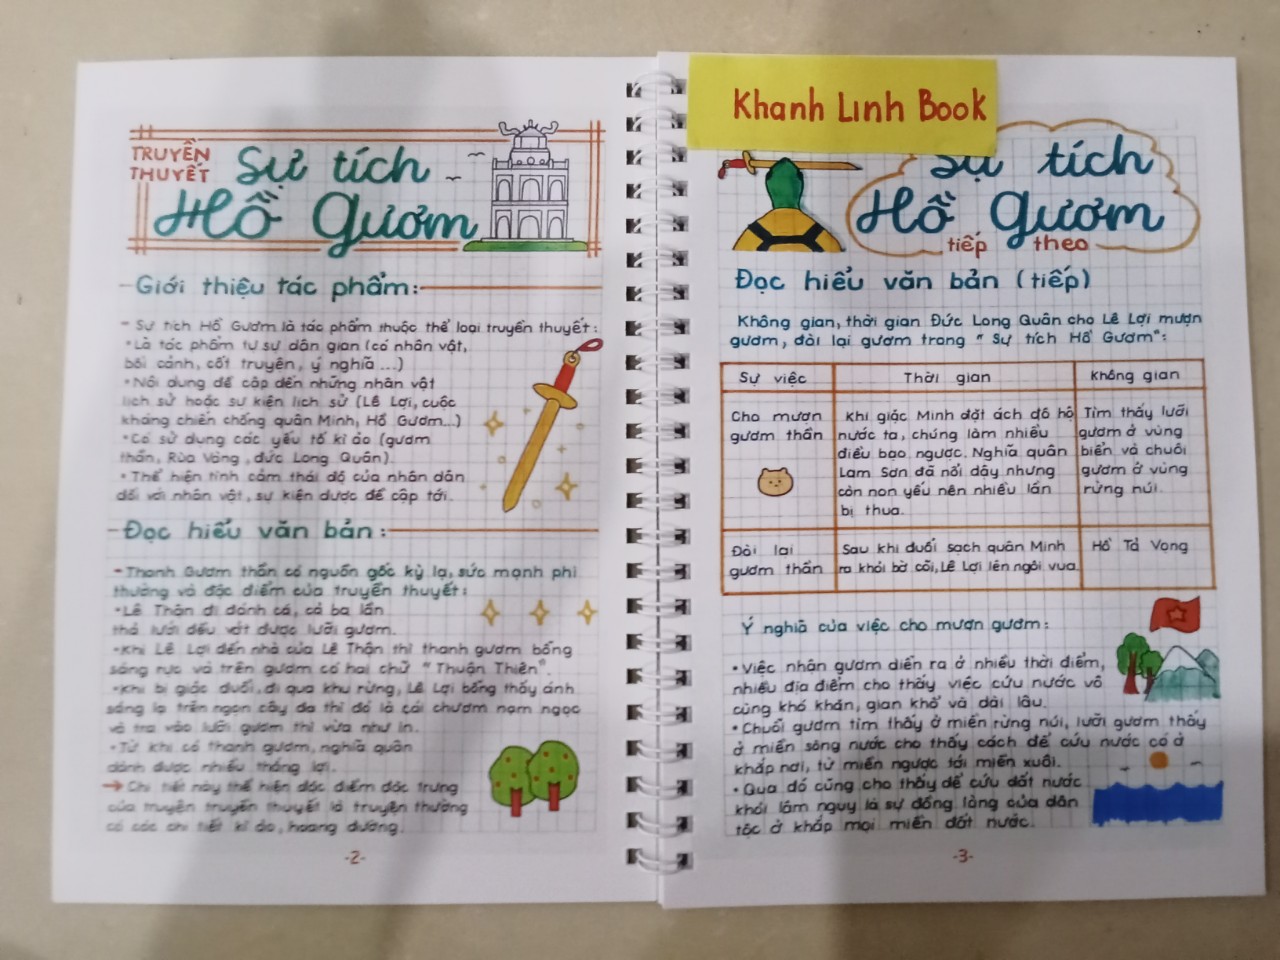 TRUYỀN
THUYẾT
Sự tích
Hồ Gươm
Giới thiệu tác phẩm:
- Sự tích Hồ Gươm là tác phẩm thuộc thể loại truyền thuyết:
• Là tác phẩm tự sự dân gian (có nhân vật,
bối cảnh, cốt truyện, ý nghĩa ...)
• Nội dung đề cập đến những nhân vật
lịch sử hoặc sự kiện lịch sử (Lê Lợi, cuộc
kháng chiến chống quân Minh, Hồ Gươm...)
• Có sử dụng các yếu tố kì ảo (gươm
thần, Rùa Vàng, đức Long Quân).
• Thể hiện tình cảm thái độ của nhân dân
đối với nhân vật, sự kiện được đề cập tới.
Đọc hiểu văn bản:
- Thanh Gươm thần có nguồn gốc kỳ lạ, sức mạnh phi
thường và đặc điểm của truyền thuyết:
• Lê Thận đi đánh cá, cả ba lần
thả lưới đều vớt được lưỡi gươm.
• Khi Lê Lợi đến nhà của Lê Thận thì thanh gươm bỗng
sáng rực và trên gươm có hai chữ "Thuận Thiên".
• Khi bị giặc đuổi, đi qua khu rừng, Lê Lợi bỗng thấy ánh
sáng lạ trên ngọn cây đa thì đó là cái chươm nạm ngọc
và tra vào lưỡi gươm thì vừa như in.
• Từ khi có thanh gươm, nghĩa quân
đánh được nhiều thắng lợi.
→ Chi tiết này thể hiện đặc điểm đặc trưng
của truyện truyền thuyết là truyện thường
có các chi tiết kì ảo, hoang đường.
-2-
Khanh Linh Book
Sự tích
Hồ Gươm
tiếp theo
Đọc hiểu văn bản (tiếp)
Không gian, thời gian Đức Long Quân cho Lê Lợi mượn
gươm, đòi lại gươm trong "Sự tích Hồ Gươm":
Sự việc
Thời gian
Không gian
Cho mượn
gươm thần
Khi giặc Minh đặt ách đô hộ
nước ta, chúng làm nhiều
điều bạo ngược. Nghĩa quân
Lam Sơn đã nổi dậy nhưng
còn non yếu nên nhiều lần
bị thua.
Tìm thấy lưỡi
gươm ở vùng
biển và chuôi
gươm ở vùng
rừng núi.
Đòi lại
gươm thần
Sau khi đuổi sạch quân Minh
ra khỏi bờ cõi, Lê Lợi lên ngôi vua.
Hồ Tả Vọng
Ý nghĩa của việc cho mượn gươm:
• Việc nhận gươm diễn ra ở nhiều thời điểm,
nhiều địa điểm cho thấy việc cứu nước vô
cùng khó khăn, gian khổ và dài lâu.
• Chuôi gươm tìm thấy ở miền rừng núi, lưỡi gươm thấy
ở miền sông nước cho thấy cách để cứu nước có ở
khắp nơi, từ miền ngược tới miền xuôi.
• Qua đó cũng cho thấy để cứu đất nước
khỏi lâm nguy là sự đồng lòng của dân
tộc ở khắp mọi miền đất nước.
-3-